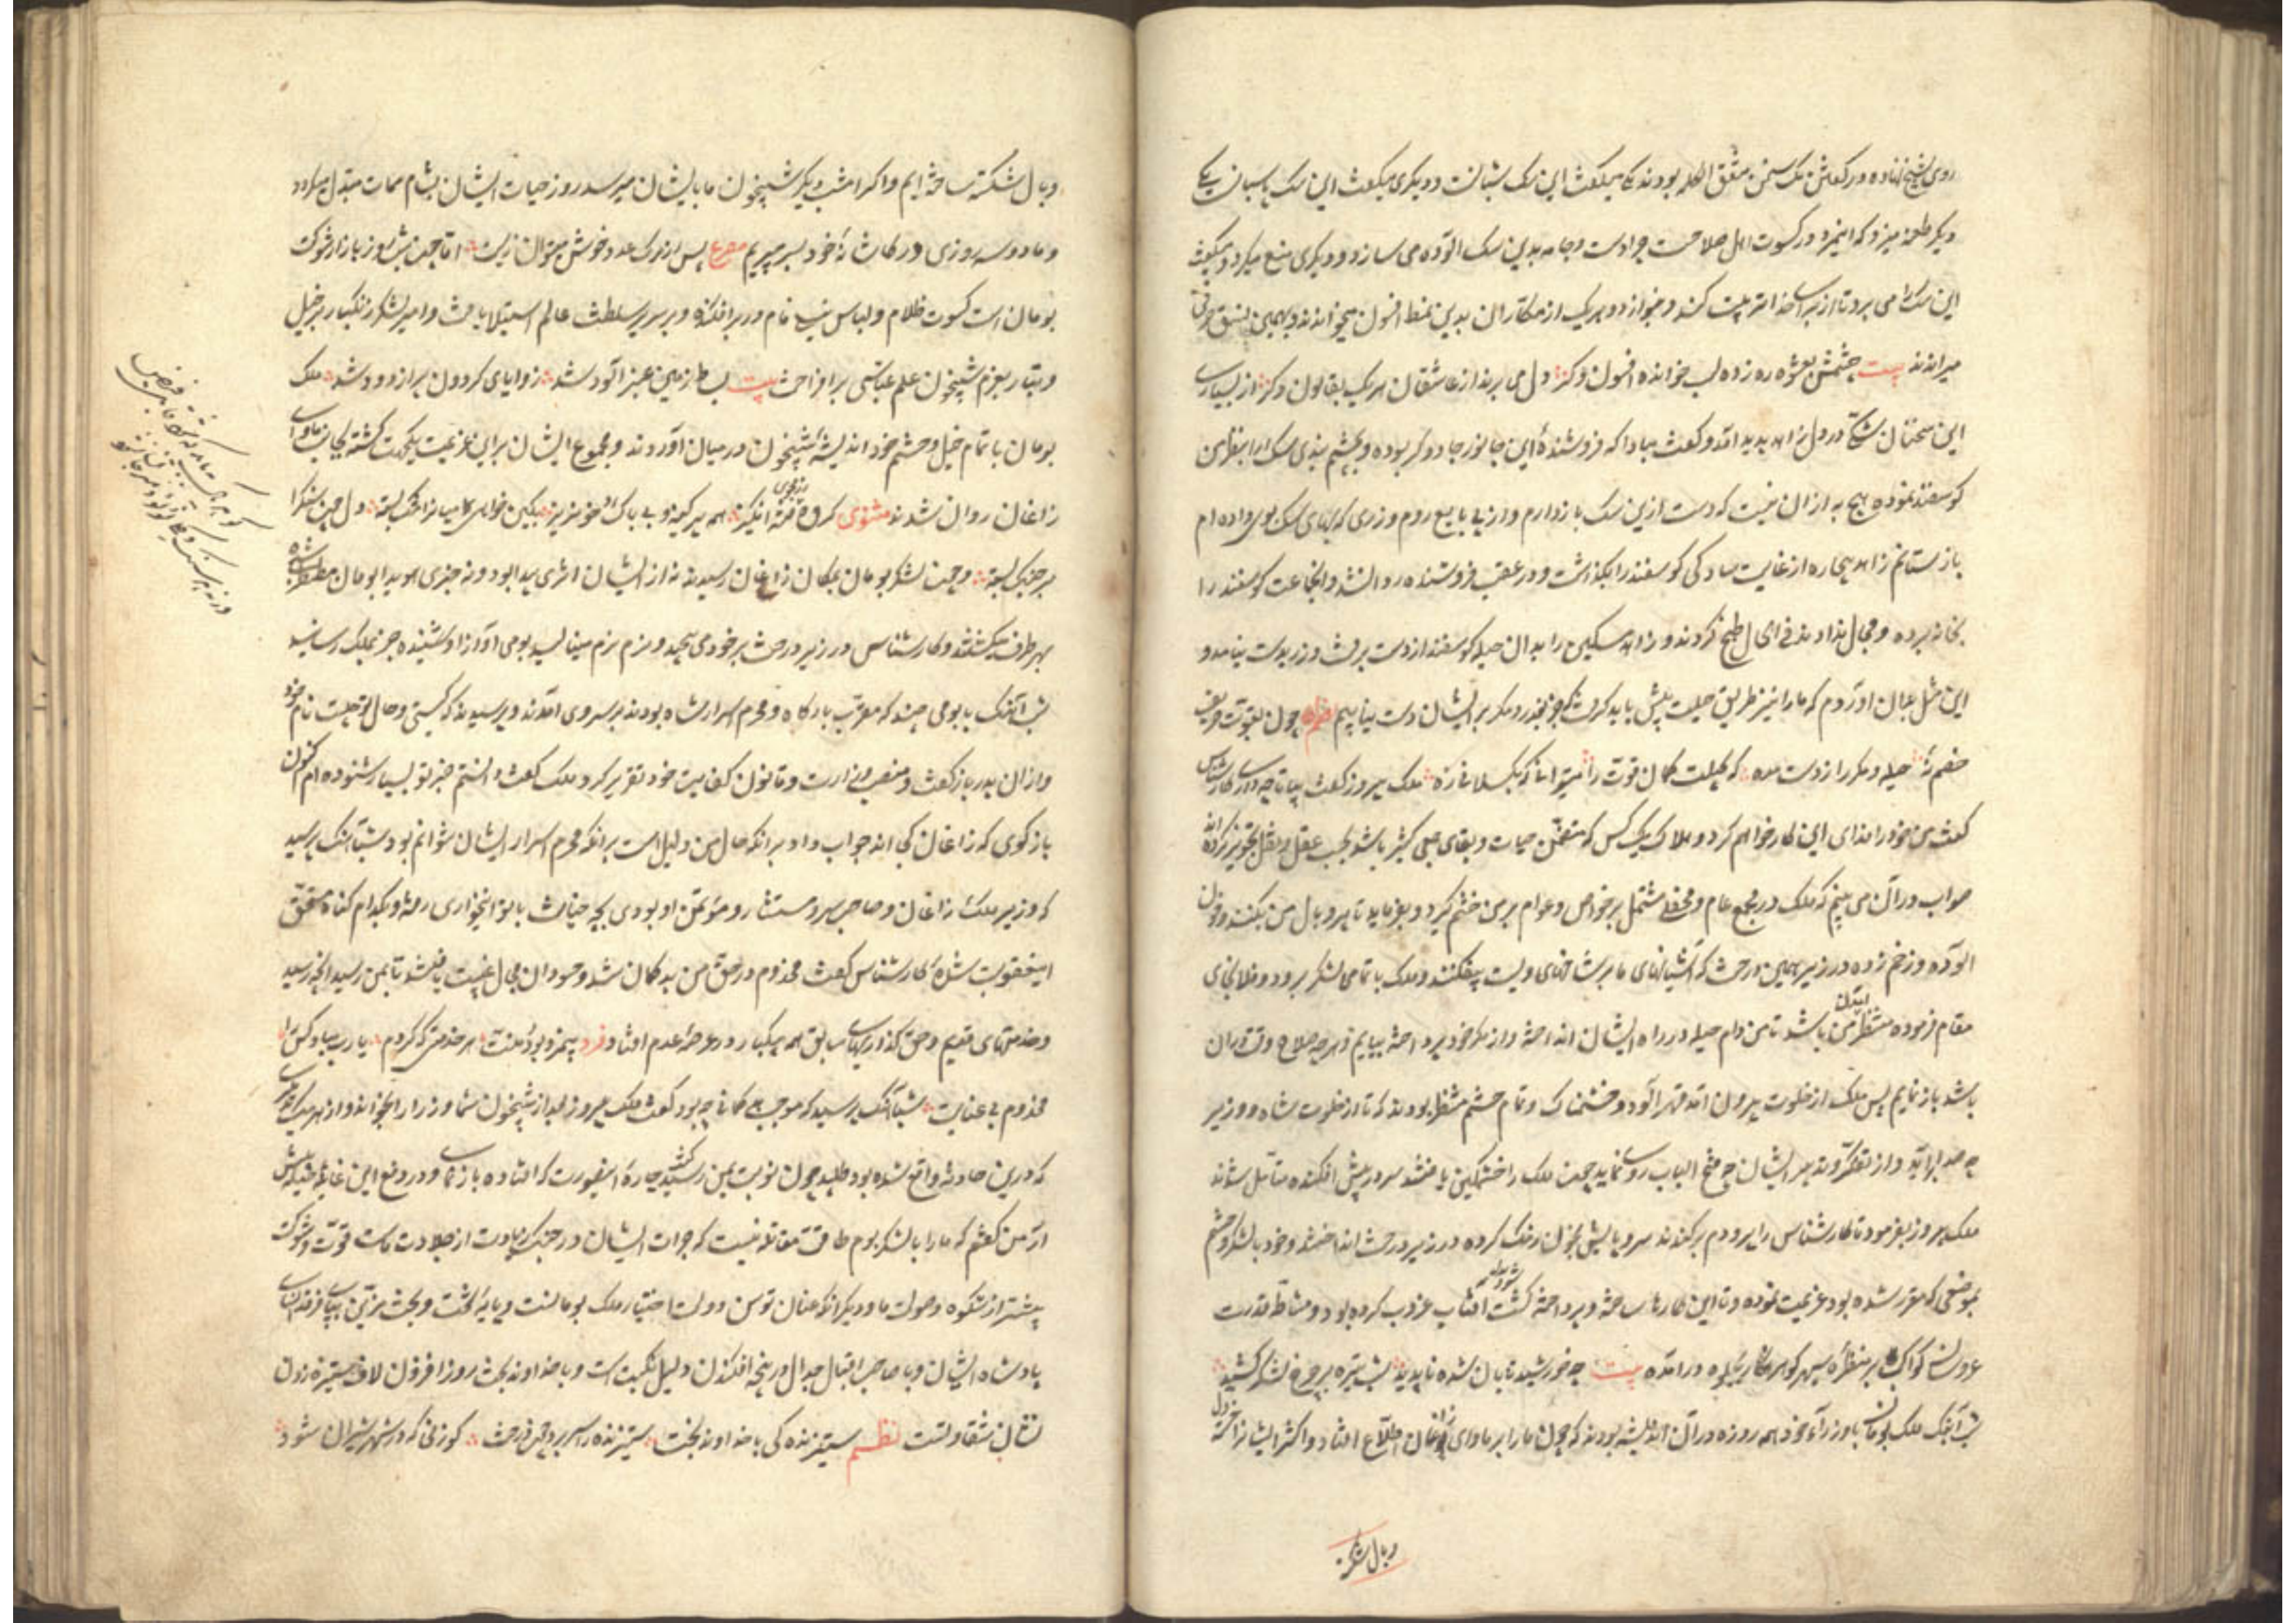 روی بشیخ نهاده و در گفتن یک سخن متفق الکلمه بودند یکی میگفت این سگ شبانست و دیگری میگفت این سگ پاسبان یکی
دیگر طعنه میزد که اینمرد در کسوت اهل صلاحست چرا دست و جامه بدین سگ آلوده می سازد و دیگری منع میکرد و میگفت
این سگ را می برد تا از برای خدا تربیت کند و بنوازد و هر یک از مکاران بدین نمط افسون میخواندند و بهمین نسق حرفی
میراندند بیت چشمش بعشوه ره زده لب خوانده افسون دگر دل می برند از عاشقان هر یک بقانون دگر از بسیاری
این سخنان شکی در دل زاهد پدید آمد و گفت مبادا که فروشندهٔ این جانور جادوگر بوده و بچشم بندی سگ را بنظر من
گوسفند نموده هیچ به از آن نیست که دست ازین سگ بازدارم و از پی بایع روم و زری که بهای سگ بوی داده ام
بازستانم زاهد بیچاره از غایت سادگی گوسفند را بگذاشت و در عقب فروشنده روان شد و آنجماعت گوسفند را
بخانه برده و مجال نداده فی الحال طبخ کردند و زاهد مسکین را بدان حیله گوسفند از دست برفت و زر بدست نیامد و
این مثل بدان آوردم که ما را نیز طریق حیلت پیش باید گرفت که جز بغدر و مکر بر ایشان دست نیابیم چون بقوت حریف
خصم نهٔ حیله و مکر را ز دست مده که بحیلت کمان قوت را میتوانی که بگسلانی زه ملک پیروز گفت بیا تا چه داری کارشناس
گفت من خود را فدای این کار خواهم کرد و هلاک یک کس که متضمن حیات و بقای جمعی کثیر باشد بحسب عقل و نقل تجویز کرده اند
صواب در آن می بینم که ملک در مجمع عام و محفلی مشتمل بر خواص و عوام بر من خشم گیرد و بفرماید تا پر و بال من بکنند و خون
آلوده و زخم زده در زیر همین درخت که آشیانهای ما بر شاخهای ویست بیفکنند و ملک با تمامی لشکر برود و فلان جای
مقام فرموده منتظر آمدن من باشد تا من دام حیله در راه ایشان انداخته و از مکر خود پرداخته بیایم و هرچه صلاح وقت در آن
باشد بازنمایم پس ملک از خلوت بیرون آمد قهرآلود و خشمناک و تمام حشم منتظر بودند که تا از خلوت شاه و وزیر
چه صدا برآید و از تفکر و تدبیر ایشان چه فتح الباب روی نماید چون ملک را خشمگین یافتند سر در پیش افکنده متأمل شدند
ملک پیروز بفرمود تا کارشناس را پر و دم برکندند سر و پایش بخون رنگ کرده در زیر درخت انداختند و خود با لشکر و حشم
بموضعی که مقرر شده بود عزیمت نموده و تا این کارها ساخته و پرداخته گشت آفتاب غروب کرده بود و مشاطه قدرت
عروسان کواکب بر منظرهٔ سپهر گوهرنگار بجلوه درآمده بیت چو خورشید تابان شده ناپدید شب تیره بر چرخ لشکر کشید
شباهنگ ملک بومان با وزراء خود همه روزه در آن اندیشه بودند که چون ما را بر ماوای زاغان اطلاع افتاد و اکثر ایشانرا خسته دل
و بال شکسته
و بال شکسته ساخته ایم و اگر امشب دیگر شبیخون ما بایشان میرسد روز حیات ایشان بشام ممات مبدل میگردد
و ما دو سه روزی در کاشانهٔ خود بسر بریم مصرع پس از مرگ عدو خوش میتوان زیست اما چون شب روز بازار شوکت
بومان است کسوت ظلام و لباس سیه فام در بر افکنده و بر سریر سلطنت عالم استیلا یافت و امیر لشکر زنگبار بر خیل
و تبار بعزم شبیخون علم عباسی برافراخت بیت بساط زمین عنبرآلود شد زوایای گردون پر از دود شد ملک
بومان با تمام خیل و حشم خود اندیشهٔ شبیخون در میان آوردند و مجموع ایشان بر این عزیمت یکجهت گشته بجانب ماوای
زاغان روان شدند مثنوی گروه فتنه انگیز همه پرکینه و بی باک و خونریز بکین خواهی میانرا تنگ بسته دل چون سنگ را
بر جنگ بسته و چون لشکر بومان بمکان زاغان رسیدند نه از ایشان اثری پیدا بود و نه خبری هویدا بومان مضطرب شده
بهر طرف میگشتند و کارشناس در زیر درخت بر خود می پیچید و نرم نرم مینالید بومی آواز او شنیده خبر بملک رسانید
شب آهنگ با بومی چند که مقرب بارگاه و محرم اسرار شاه بودند بر سر وی آمدند و پرسیدند که کیستی و حال تو چیست نام خود
و از آن پدر بازگفت و منصب وزارت و قانون کفایت خود تقریر کرد ملک گفت دانستم خبر تو بسیار شنوده ام اکنون
بازگوی که زاغان کجا اند جواب داد بر آنکه حال من دلیل است بر آنکه محرم اسرار ایشان نتوانم بود شباهنگ پرسید
که وزیر ملک زاغان و صاحب سر و مستشار و مؤتمن او بودی بچه خیانت با تو اینخواری رفت و بکدام گناه مستحق
این عقوبت شدهٔ کارشناس گفت مخدوم در حق من بدگمان شد و حسودان مجال غیبت یافتند تا بمن رسید آنچه رسید
و خدمتهای قدیم و حق گذاریهای سابق همه بیکبار در عرصهٔ عدم افتاد فرد بیمزد بود و منت هر خدمتی که کردم یا رب مباد کس را
مخدوم بی عنایت شباهنگ پرسید که موجب بدگمانی چه بود گفت ملک پیروز بعد از شبیخون شما وزرا را بخواند و از هر یک تدبیری
که درین حادثه واقع شده بود طلبید چون نوبت بمن رسید گفت چارهٔ اینصورت که افتاده بازنمای و در دفع این غایله حیله پیش
آر من گفتم که ما را با لشکر بوم طاقت مقاتله نیست که جرأت ایشان در جنگ زیادت از جلادت ماست قوت و شوکت
بیشتر از شکوه و صولت ما و دیگر آنکه عنان توسن دولت اختیار ملک بومانست و پایهٔ تخت و بخت مزین بپای فرقدسای
پادشاه ایشان و با صاحب اقبال جدال و پنجه افکندن دلیل نکبت است و با خداوند بخت روزافزون لاف ستیزه زدن
نشان شقاوتست نظم ستیزنده کی با خداوند بخت ستیزنده را سر برد چون درخت گوزنی که در شهر شیران شود